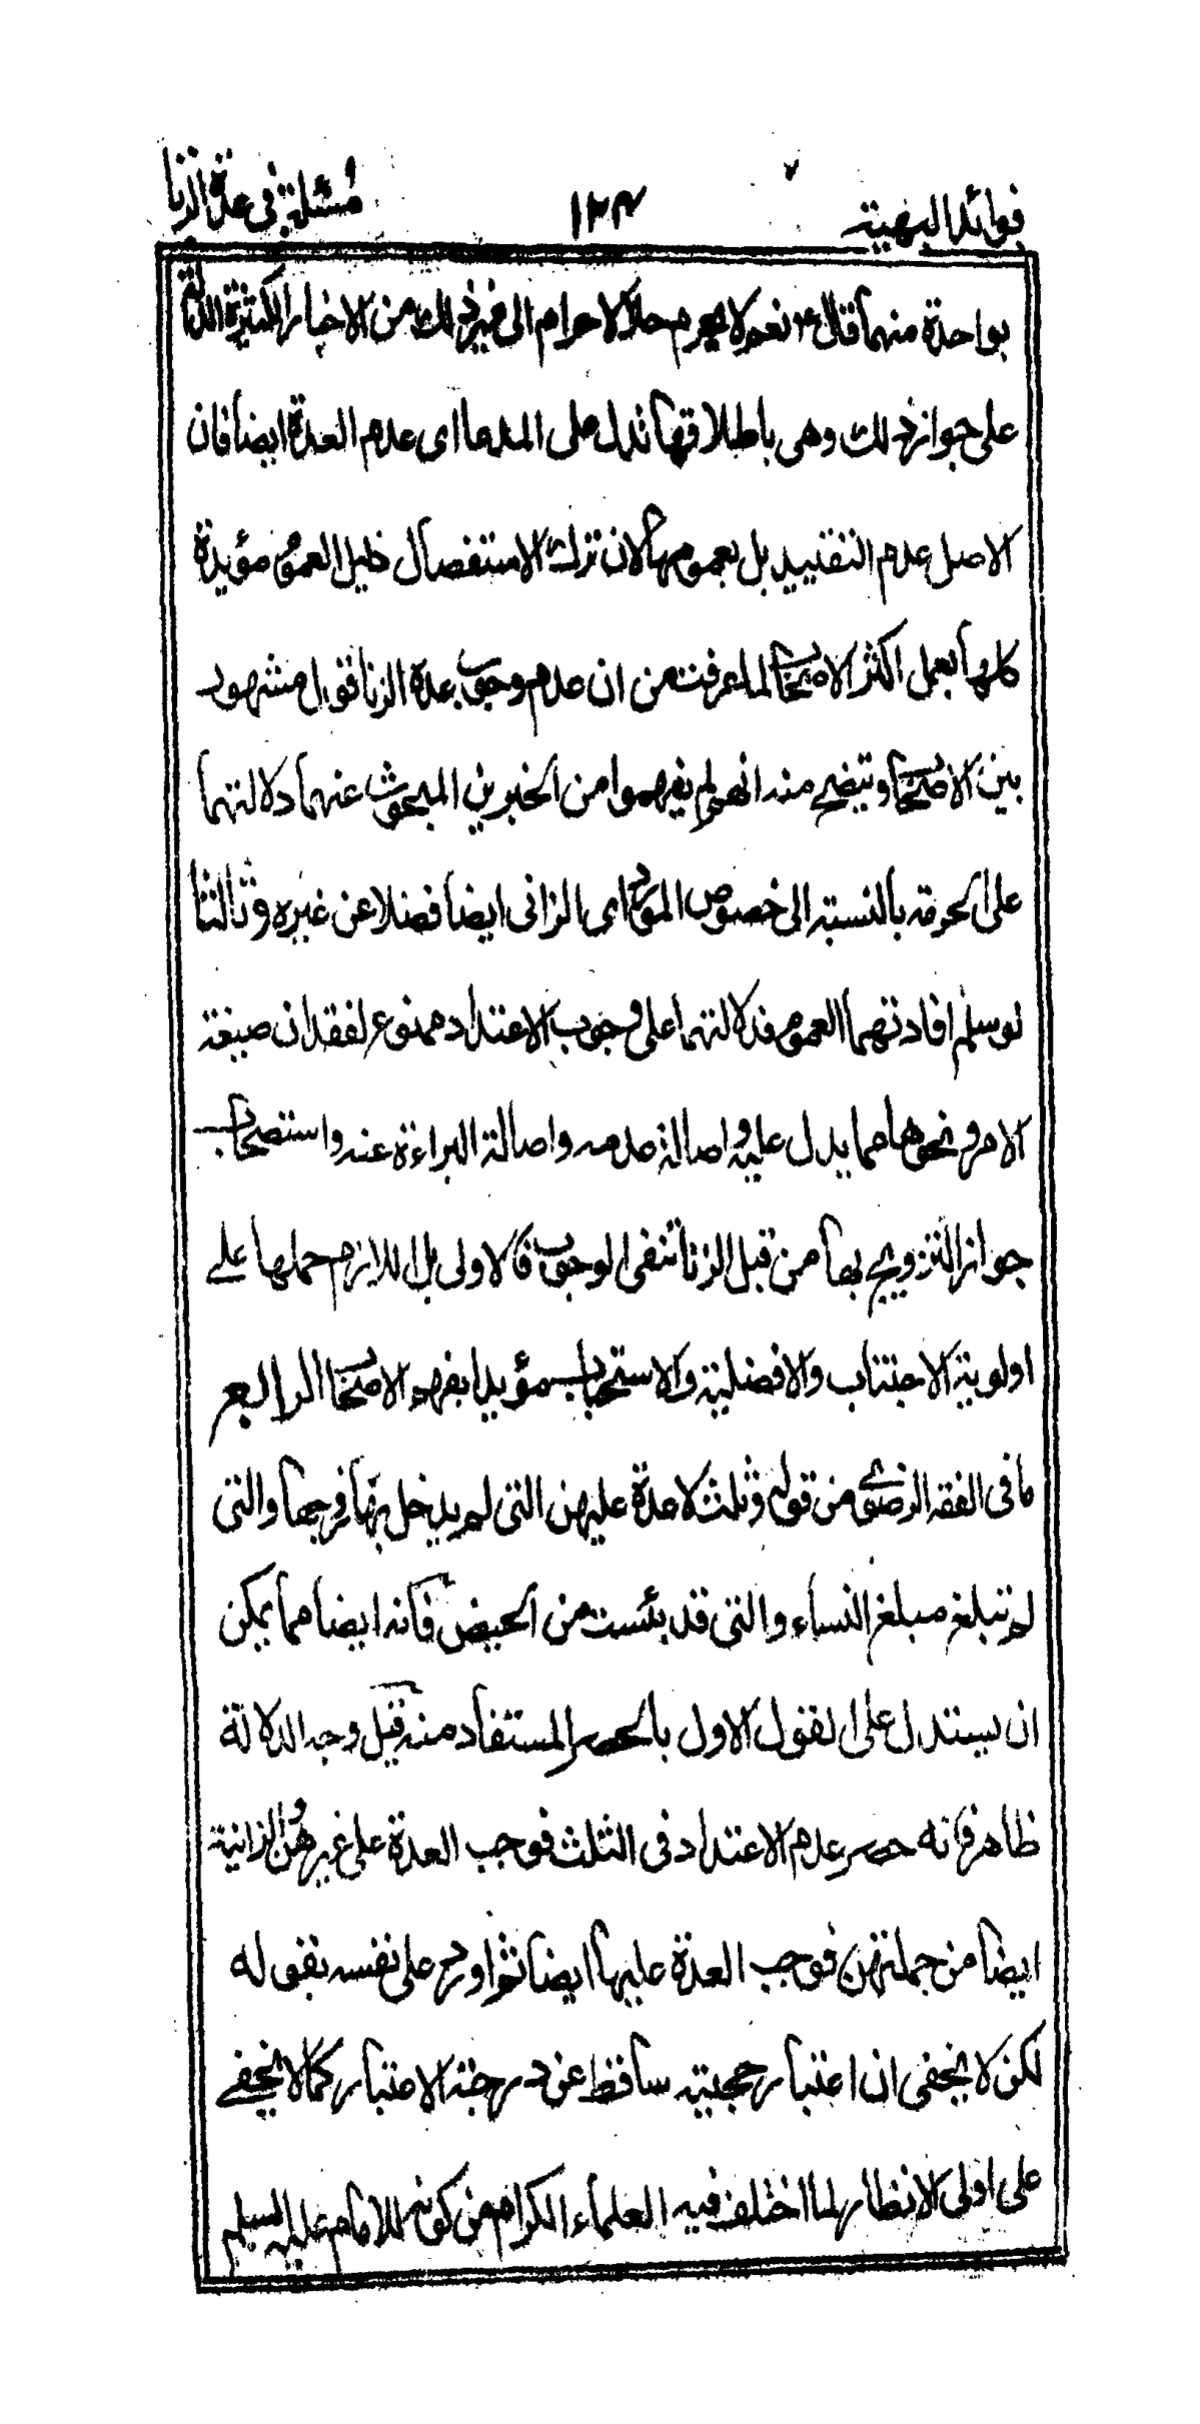 فوائد البهية ١٢٤ مسئلة في عدة الزنا
بواحدة منهما قال ٤ نعم لا يحرم حلالا حرام الى غير ذلك من الاخبار الكثيرة الدالة
على جواز ذلك وهى باطلاقها تدل على المدعا اى عدم العدة ايضا فان
الاصل عدم التقييد بل بعمومها لان ترك الاستفصال دليل العموم مؤيدة
كلها بعمل اكثر الاصحاب لما عرفت من ان عدم وجوب عدة الزنا قول مشهور
بين الاصحاب ويتضح منه انهم لم يفهموا من الخبرين المبحوث عنهما دلالتهما
على الحرمة بالنسبة الى خصوص المورد اى الزانى ايضا فضلا عن غيره وثالثا
لو سلم افادتهما العموم فدلالتهما على وجوب الاعتداد ممنوع لفقدان صيغة
الامر ونحوها مما يدل عليه واصالة عدمه واصالة البراءة عنه واستصحاب
جواز التزويج بها من قبل الزنا تنفى الوجوب فالاولى بل اللازم حملها على
اولوية الاجتناب والافضلية والاستحباب مؤيدا بفهم الاصحاب الرابع
ما في الفقه الرضوى من قوله وثلث لا عدة عليهن التى لم يدخل بها فرجها والتى
لم تبلغ مبلغ النساء والتى قد يئست من الحيض فانه ايضا مما يمكن
ان يستدل على القول الاول بالحصر المستفاد منه قيل وجه الدلالة
ظاهر فانه حصر عدم الاعتداد فى الثلث فوجب العدة على غيرهن والزانية
ايضا من جملتهن فوجب العدة عليها ايضا ثم اورد على نفسه بقوله
لكن لا يخفى ان اعتبار حجيته ساقط عن درجة الاعتبار كما لا يخفے
على اولى الانظار لما اختلف فيه العلماء الكرام من كونه للامام عليه السلم